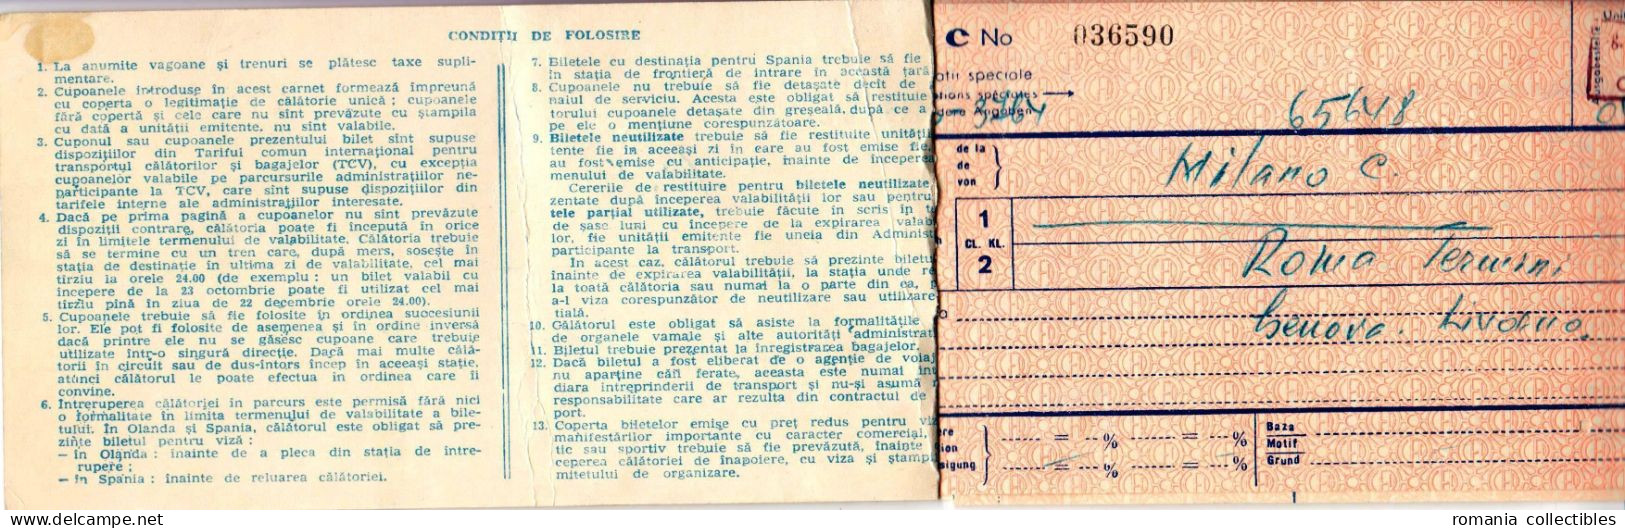 CONDIȚII DE FOLOSIRE
1. La anumite vagoane și trenuri se plătesc taxe supli-
mentare.
2. Cupoanele introduse în acest carnet formează împreună
cu coperta o legitimație de călătorie unică; cupoanele
fără copertă și cele care nu sînt prevăzute cu ștampila
cu dată a unității emitente, nu sînt valabile.
3. Cuponul sau cupoanele prezentului bilet sînt supuse
dispozițiilor din Tariful comun internațional pentru
transportul călătorilor și bagajelor (TCV), cu excepția
cupoanelor valabile pe parcursurile administrațiilor ne-
participante la TCV, care sînt supuse dispozițiilor din
tarifele interne ale administrațiilor interesate.
4. Dacă pe prima pagină a cupoanelor nu sînt prevăzute
dispoziții contrare, călătoria poate fi începută în orice
zi în limitele termenului de valabilitate. Călătoria trebuie
să se termine cu un tren care, după mers, sosește în
stația de destinație în ultima zi de valabilitate, cel mai
tîrziu la orele 24.00 (de exemplu: un bilet valabil cu
începere de la 23 octombrie poate fi utilizat cel mai
tîrziu pînă în ziua de 22 decembrie orele 24.00).
5. Cupoanele trebuie să fie folosite în ordinea succesiunii
lor. Ele pot fi folosite de asemenea și în ordine inversă
dacă printre ele nu se găsesc cupoane care trebuie
utilizate într-o singură direcție. Dacă mai multe călă-
torii în circuit sau de dus-întors încep în aceeași stație,
atunci călătorul le poate efectua in ordinea care îi
convine.
6. Întreruperea călătoriei în parcurs este permisă fără nici
o formalitate în limita termenului de valabilitate a bile-
tului. În Olanda și Spania, călătorul este obligat să pre-
zinte biletul pentru viză:
– în Olanda: înainte de a pleca din stația de între-
rupere;
– în Spania: înainte de reluarea călătoriei.
7. Biletele cu destinația pentru Spania trebuie să fie
în stația de frontieră de intrare în această țară
8. Cupoanele nu trebuie să fie detașate decît de
naiul de serviciu. Acesta este obligat să restituie
torului cupoanele detașate din greșeală, după ce a
pe ele o mențiune corespunzătoare.
9. Biletele neutilizate trebuie să fie restituite unității
tente fie în aceeași zi în care au fost emise fie,
au fost emise cu anticipație, înainte de începerea
menului de valabilitate.
Cererile de restituire pentru biletele neutilizate
zentate după începerea valabilității lor sau pentru
tele parțial utilizate, trebuie făcute în scris în te
de șase luni cu începere de la expirarea valab
lor, fie unității emitente fie uneia din Administ
participante la transport.
În acest caz, călătorul trebuie să prezinte biletu
înainte de expirarea valabilității, la stația unde re
la toată călătoria sau numai la o parte din ea,
a-l viza corespunzător de neutilizare sau utilizare
țială.
10. Călătorul este obligat să asiste la formalitățile
de organele vamale și alte autorități administrat
11. Biletul trebuie prezentat la înregistrarea bagajelor.
12. Dacă biletul a fost eliberat de o agenție de voiaj
nu aparține căii ferate, aceasta este numai int
diara întreprinderii de transport și nu-și asumă
responsabilitate care ar rezulta din contractul de
port.
13. Coperta biletelor emise cu preț redus pentru viz
manifestărilor importante cu caracter comercial,
tic sau sportiv trebuie să fie prevăzută, înainte
ceperea călătoriei de înapoiere, cu viza și ștamp
mitetului de organizare.
C No 036590
ații speciale
tions spéciales →
dere Angaben
65648
de la
de
von
Milano C.
1
CL. KL.
2
Roma Termini
Genova. Livorno.
ere
ion
sigung
= % = %
= % = %
Baza
Motif
Grund
romania collectibles